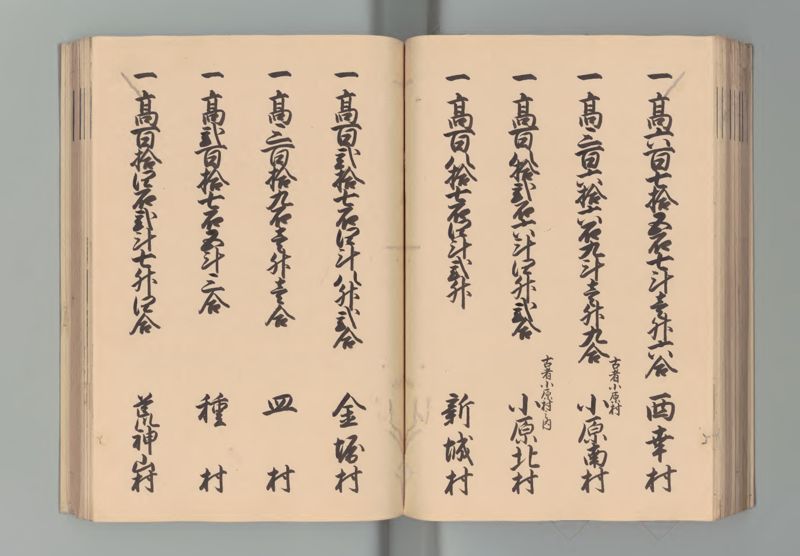 一 高六百七拾五石七斗壱升六合 西幸村
一 高三百六拾六石九斗壱升九合 古者小原村 小原南村
一 高百八拾弐石六斗四升弐合 古者小原村之内 小原北村
一 高百八拾七石四斗弐升 新城村
一 高百弐拾七石四斗八升弐合 金堀村
一 高三百拾九石壱升壱合 皿村
一 高弐百拾七石五斗三合 種村
一 高百拾四石弐斗七升四合 荒神山村